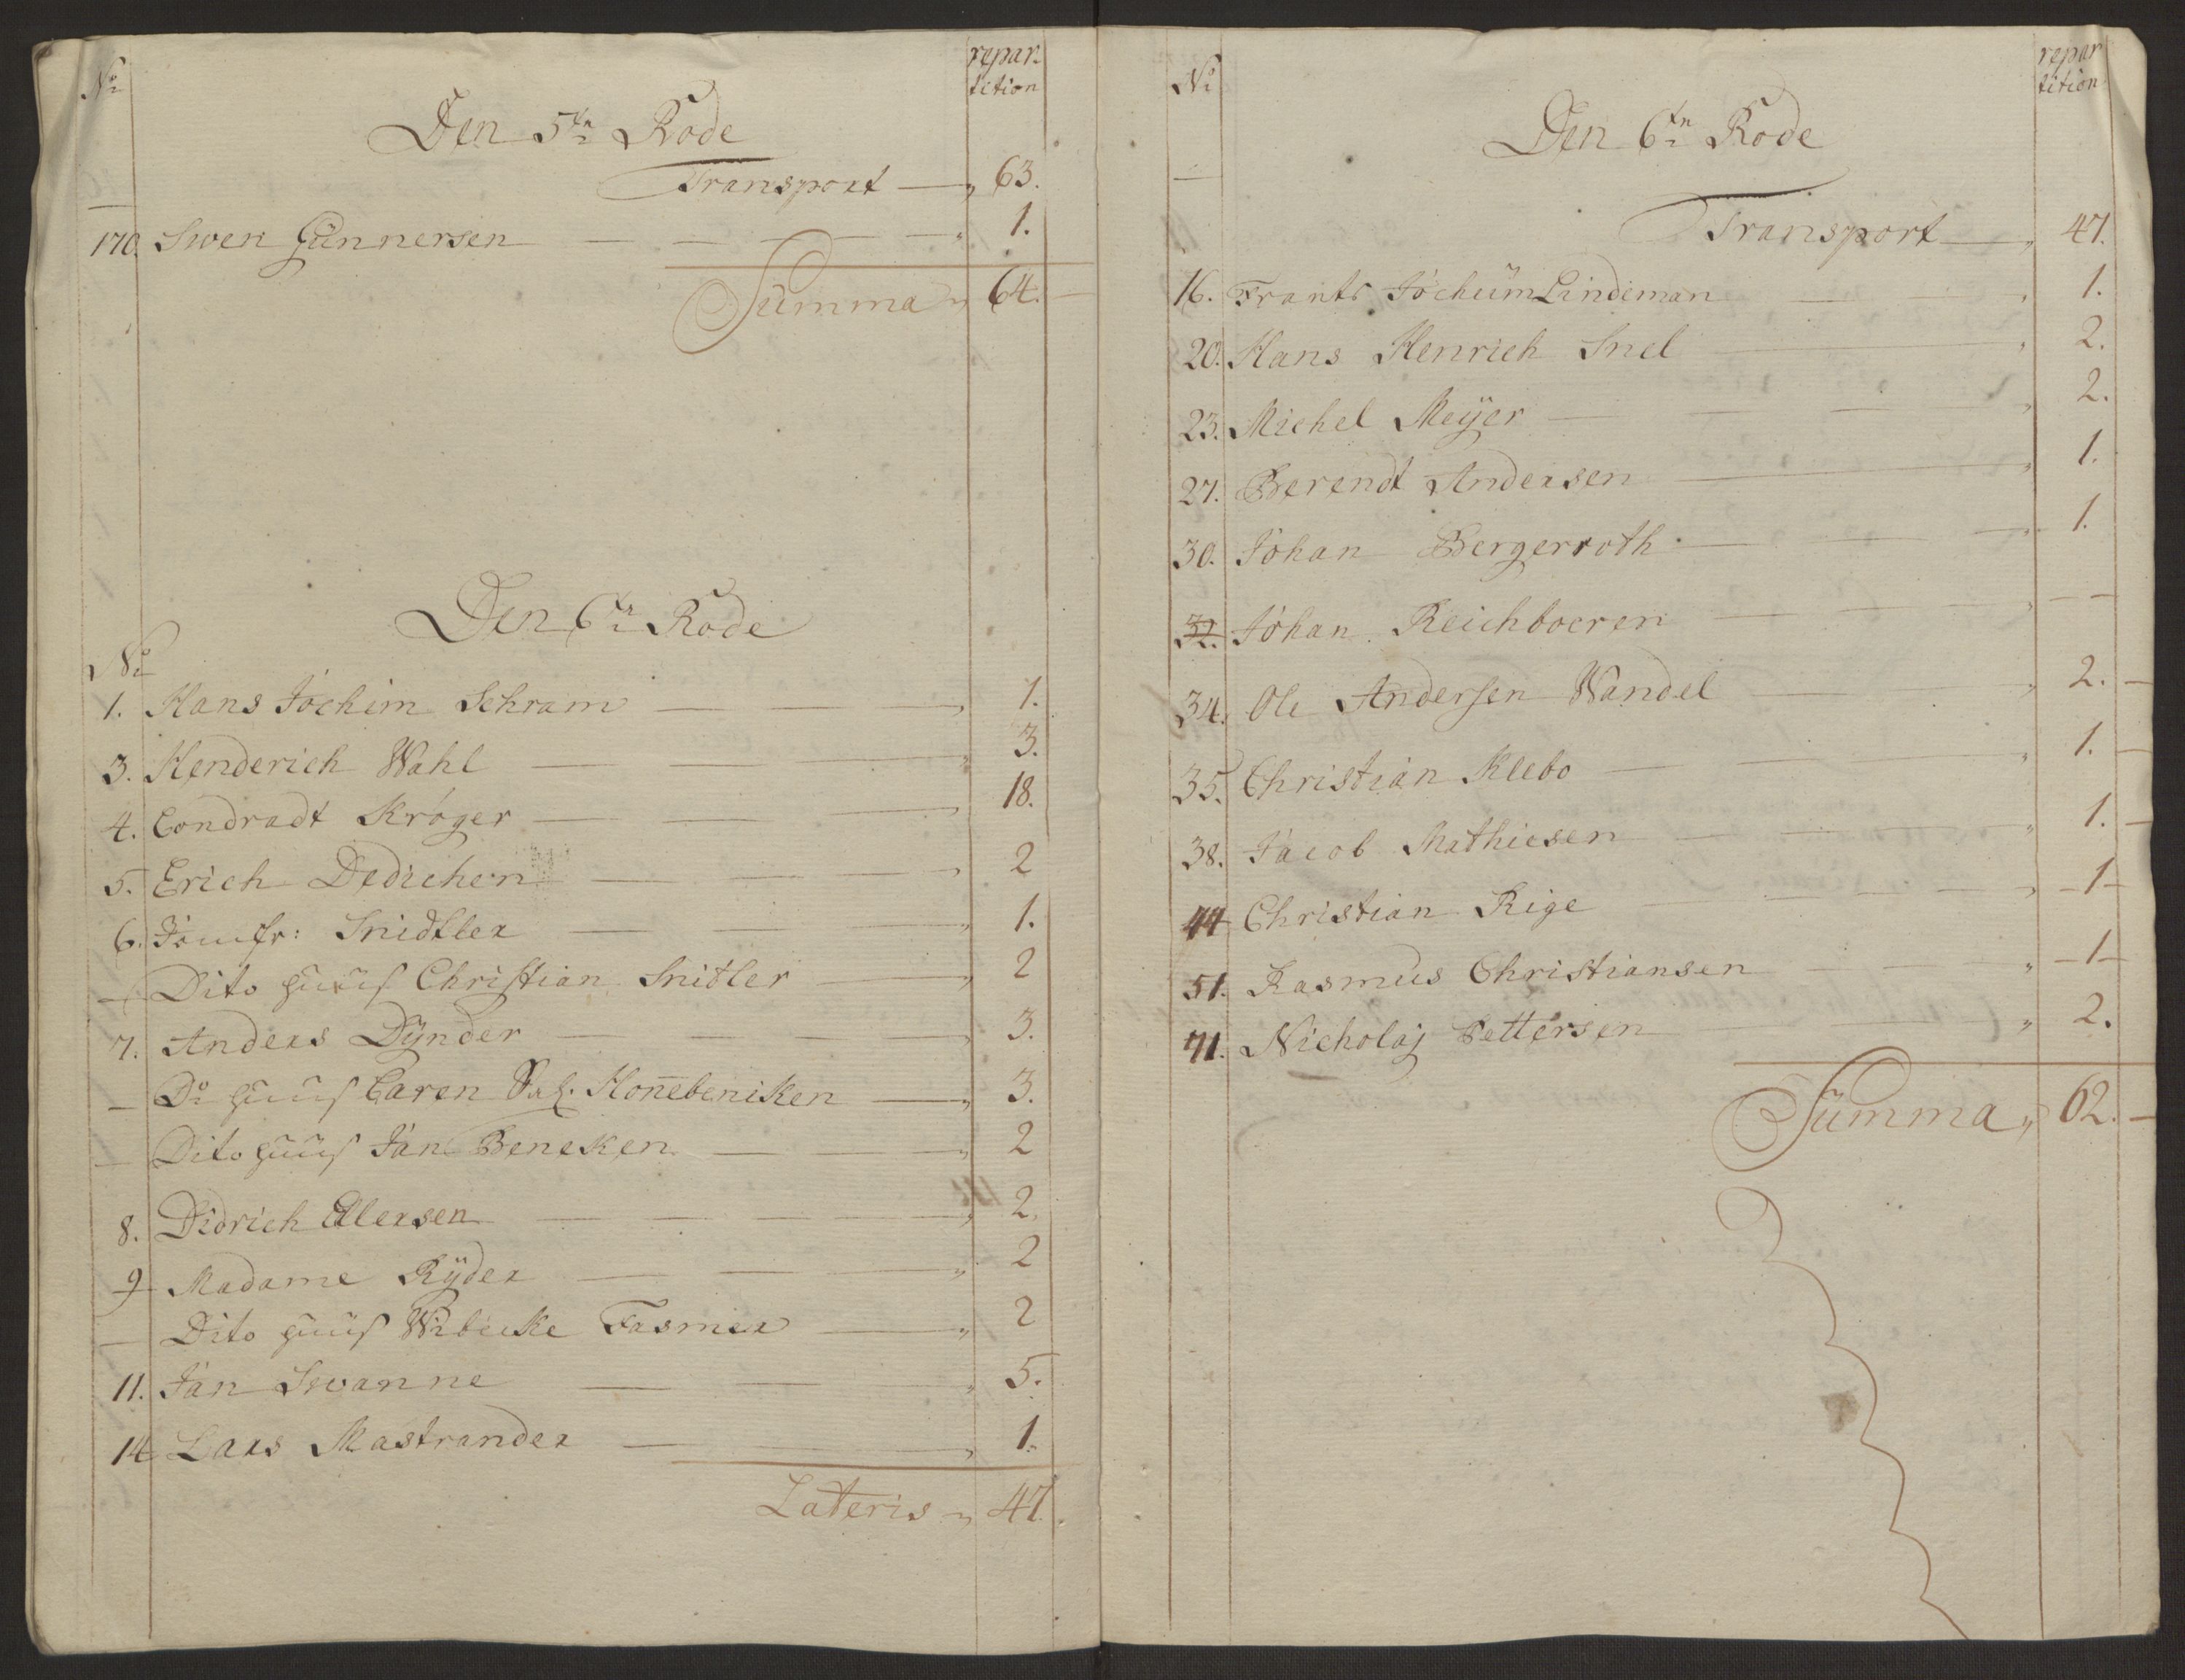 No
repar-
tition
Den 5te Rode
Transport — " 63.
170. Swen Günnersen — " 1.
Summa " 64.
Den 6te Rode
No
1. Hans Jochim Schram — " 1.
3. Henderich Wahl — " 3.
4. Condradt Krøger — " 18.
5. Erich Dedichen — " 2
6. Jomfr: Snidtler — " 1.
— Dito Huus Christian Snitler — " 2
7. Anders Dÿnder — " 3.
— Do Huus Caren Sal. Hon̄ebeniken — " 3.
— Dito Huus Jan Beneken — " 2
8. Didrich Ellersen — " 2.
9 Madame Rÿder — " 2
— Dito Huus Wibecke Fasmer — " 2
11. Jan Swanne — " 5.
14 Lars Mastrander — " 1.
Lateris " 47.
No
repar
tition
Den 6te Rode
Transport — " 47.
16. Frants Jochüm Lindeman — " 1.
20. Hans Henrich Snel — " 2.
23. Michel Meÿer — " 2.
27. Berendt Andersen — " 1.
30. Johan Bergerroth — " 1.
32. Johan Reichboeren — " — —
34. Ole Andersen Wandel — " 2. —
35. Christian Klebo — " 1. —
38. Jacob Mathiesen — " 1. —
44 Christian Rige — " — 1 —
51. Rasmus Christiansen — " — 1 —
71. Nicholaj Pettersen — " 2.
Summa " 62. —